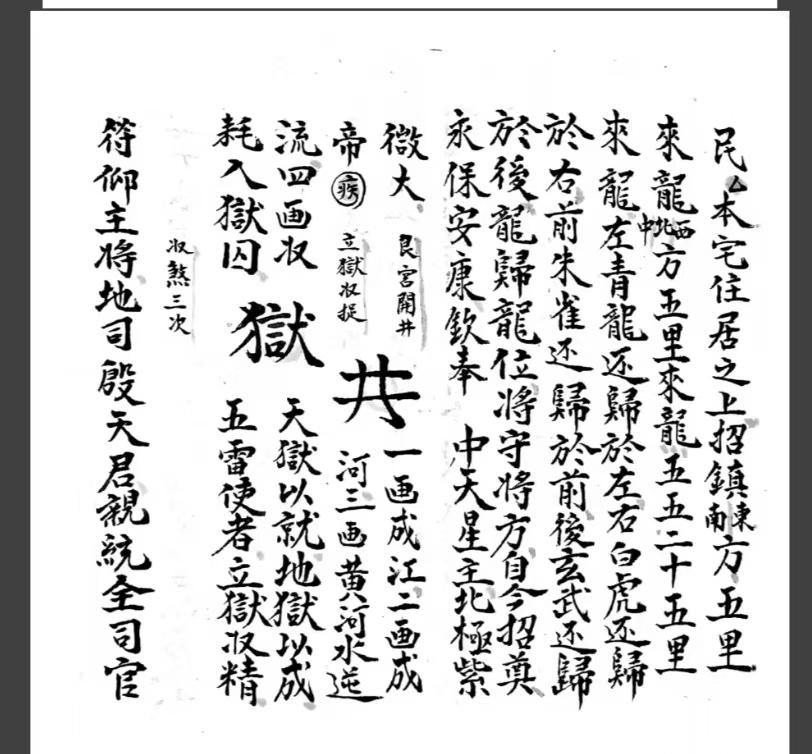 民厶本宅住居之上招鎮東南方五里
來龍西北中方五里來龍五五二十五里
來龍左青龍还歸於左右白虎还歸
於右前朱雀还歸於前後玄武还歸
於後龍歸龍位將守將方自今招奠
永保安康欽奉 中天星主北極紫
微大
艮宮開井
帝
疾
立獄収捉
井
一画成江二画成
河三画黄河水逆
流四画収
耗入獄囚
獄
天獄以就地獄以成
五雷使者立獄収精
収煞三次
符仰主將地司殷天君親統全司官